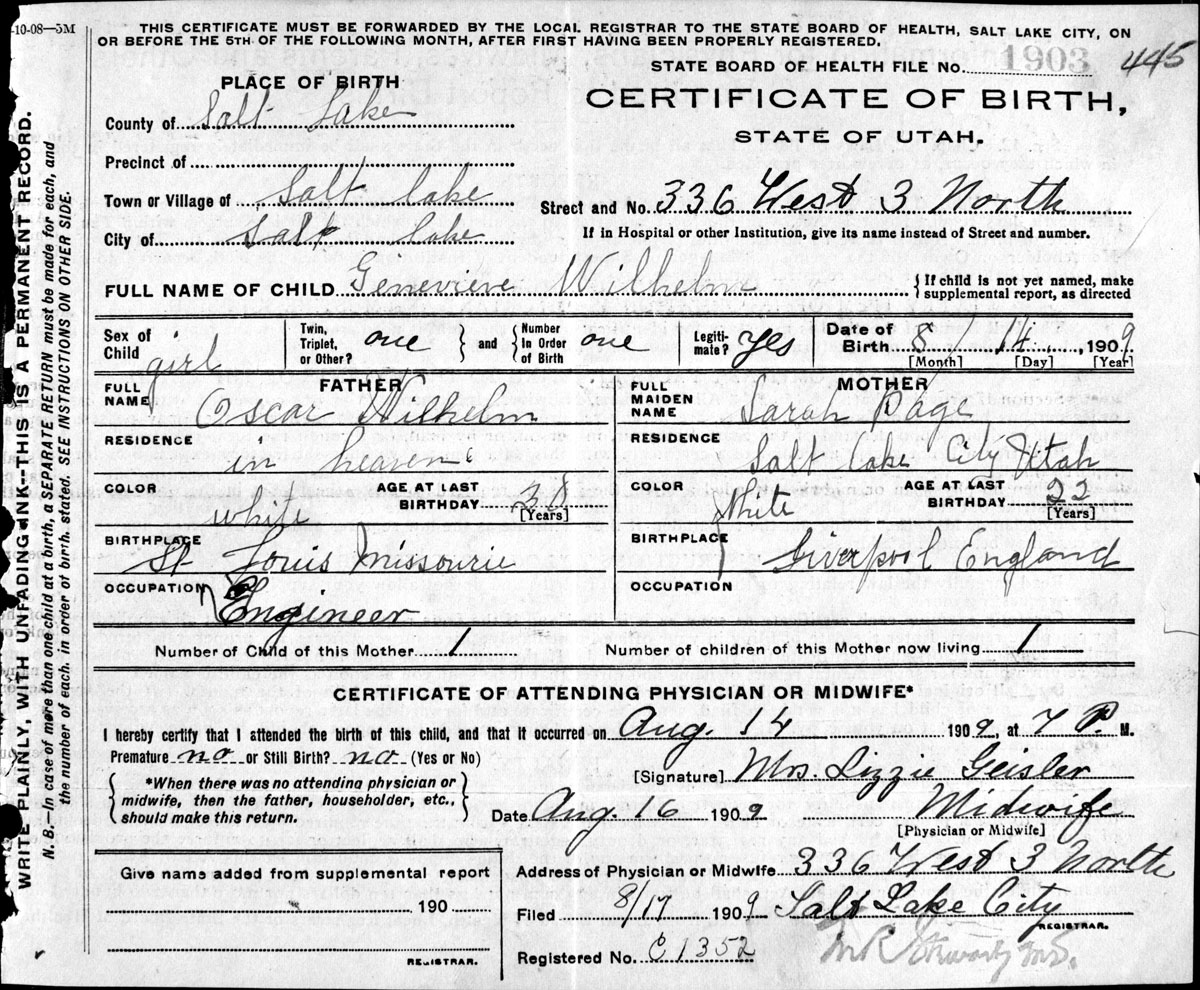 -10-08—5M
THIS CERTIFICATE MUST BE FORWARDED BY THE LOCAL REGISTRAR TO THE STATE BOARD OF HEALTH, SALT LAKE CITY, ON
OR BEFORE THE 5TH OF THE FOLLOWING MONTH, AFTER FIRST HAVING BEEN PROPERLY REGISTERED.
STATE BOARD OF HEALTH FILE No. 1903 445
PLACE OF BIRTH
CERTIFICATE OF BIRTH,
STATE OF UTAH.
County of Salt Lake
Precinct of
Town or Village of Salt lake
Street and No. 336 West 3 North
City of Salt lake
If in Hospital or other Institution, give its name instead of Street and number.
FULL NAME OF CHILD Genevieve Wilhelm
{ If child is not yet named, make
supplemental report, as directed
Sex of Child girl
Twin, Triplet, or Other? one } and { Number In Order of Birth one
Legiti- mate? yes
Date of Birth 8 14 1909
[Month] [Day] [Year]
FATHER
FULL NAME Oscar Wilhelm
RESIDENCE in heaven
COLOR white
AGE AT LAST BIRTHDAY 38 [Years]
BIRTHPLACE St Louis Missourie
OCCUPATION Engineer
MOTHER
FULL MAIDEN NAME Sarah Page
RESIDENCE Salt lake City Utah
COLOR White
AGE AT LAST BIRTHDAY 22 [Years]
BIRTHPLACE Liverpool England
OCCUPATION
Number of Child of this Mother 1
Number of children of this Mother now living 1
CERTIFICATE OF ATTENDING PHYSICIAN OR MIDWIFE*
I hereby certify that I attended the birth of this child, and that it occurred on Aug. 14 1909, at 7 P. M.
Premature no or Still Birth? no (Yes or No)
{ *When there was no attending physician or
midwife, then the father, householder, etc.,
should make this return. }
[Signature] Mrs. Lizzie Geisler
Date Aug. 16 1909 Midwife
[Physician or Midwife]
Give name added from supplemental report
190
REGISTRAR.
Address of Physician or Midwife 336 West 3 North
Filed 8/17 1909 Salt Lake City
REGISTRAR.
Registered No. C1352
WRITE PLAINLY, WITH UNFADING INK--THIS IS A PERMANENT RECORD.
N. B.—In case of more than one child at a birth, a SEPARATE RETURN must be made for each, and
the number of each, in order of birth, stated. SEE INSTRUCTIONS ON OTHER SIDE.